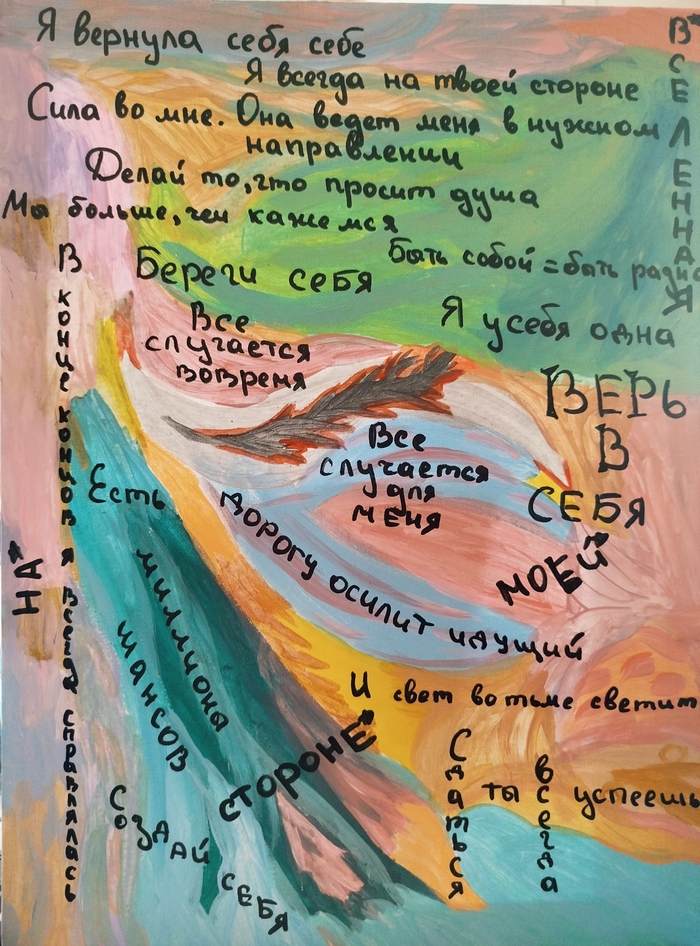 Я вернула себя себе
Я всегда на твоей стороне
Сила во мне. Она ведет меня в нужном
направлении
Делай то, что просит душа
Мы больше, чем кажемся
Быть собой = быть
Береги себя
Я у себя одна
Все
случается
вовремя
ВЕРЬ
В
СЕБЯ
Все
случается
для
меня
ВСЕЛЕННАЯ
НА
МОЕЙ
СТОРОНЕ
В конце концов я всегда справлялась
Есть
миллионы
шансов
Дорогу осилит идущий
И свет во тьме светит
Сдаться ты всегда успеешь
Создай
себя